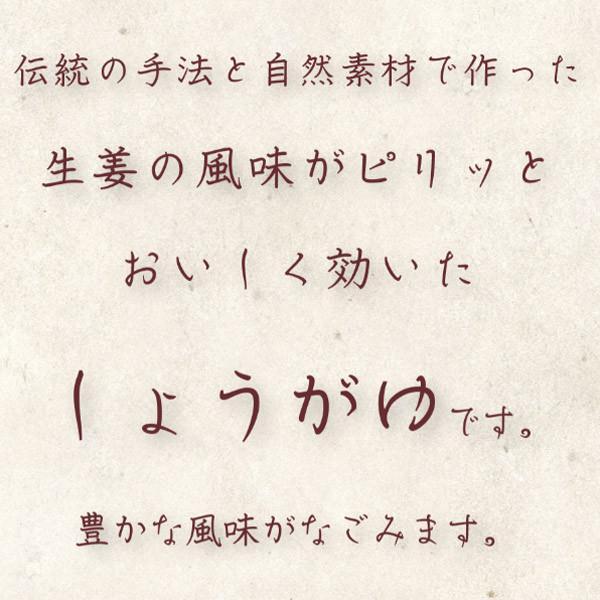 伝統の手法と自然素材で作った
生姜の風味がピリッと
おいしく効いた
しょうがゆです。
豊かな風味がなごみます。